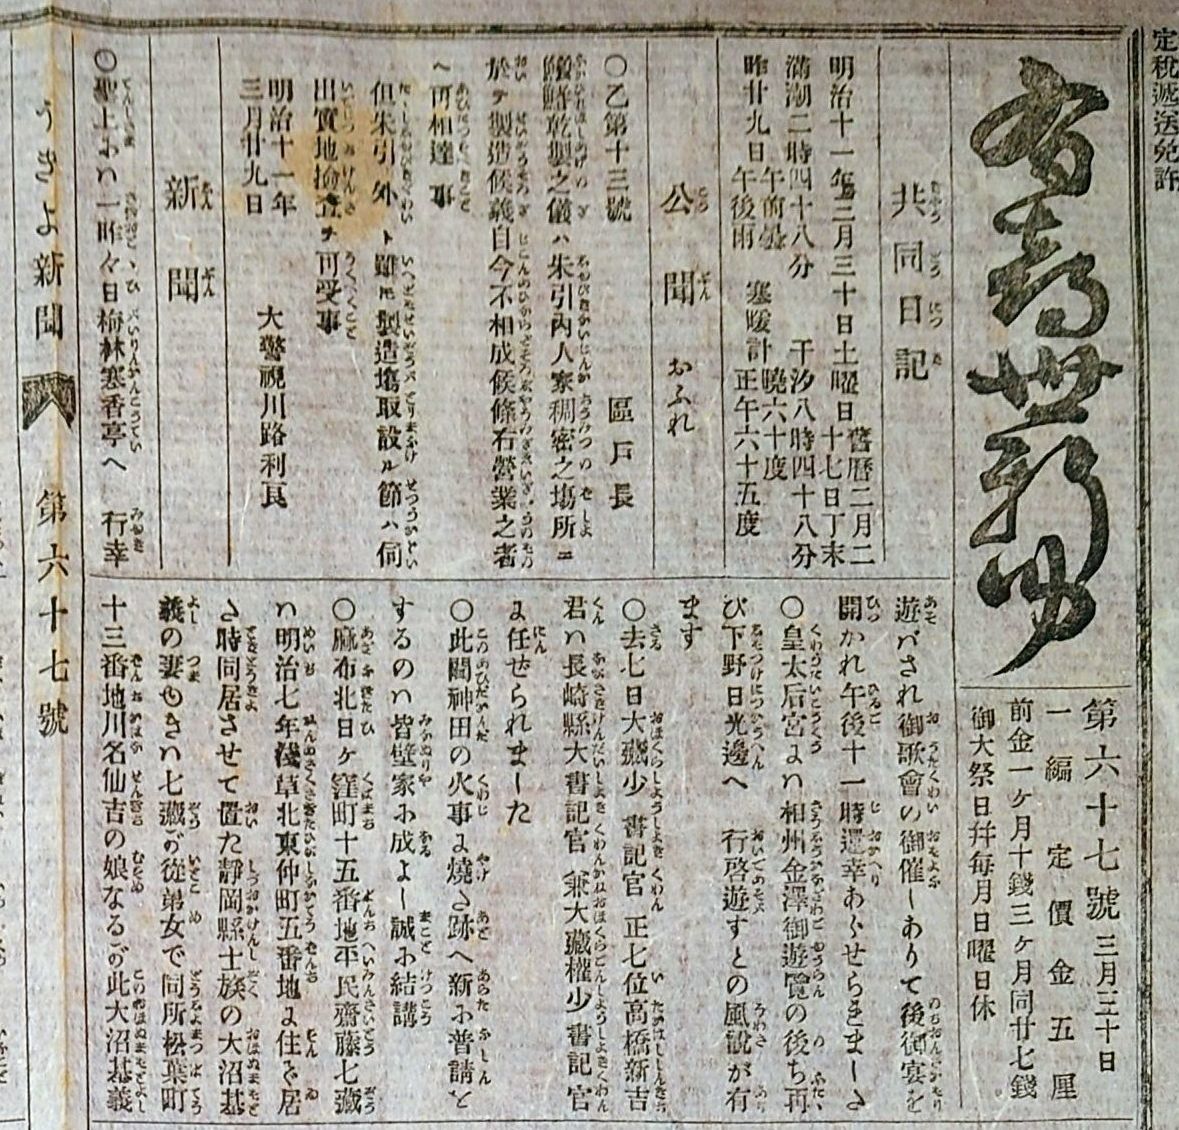 定税遞送免許
有喜世新聞
第六十七號 三月三十日
一編定價金五厘
前金一ヶ月十錢三ヶ月同廿七錢
御大祭日幷毎月日曜日休
共同日記
明治十一年三月三十日土曜日 舊暦二月二十七日丁未
滿潮二時四十八分 干汐八時四十八分
昨廿九日 午前曇 午後雨 寒暖計 曉六十度 正午六十五度
公聞 おふれ
〇乙第十三號 區戸長
乾製之儀ハ朱引内人家稠密之塲所ニ
於テ製造候義自今不相成候條右營業之者
ヘ可相達事
但朱引外ト雖𪜈製造塲取設ル節ハ伺
出實地撿査ヲ可受事
明治十一年
三月廿九日 大警視川路利良
新聞
〇聖上にハ一昨々日梅林寒香亭へ 行幸
遊バされ御歌會の御催しありて後御宴を
開かれ午後十一時還幸あらせられました
〇皇太后宮にハ相州金澤御遊覽の後ち再
び下野日光邊へ 行啓遊すとの風説が有
ます
〇去七日大藏少書記官正七位高橋新吉
君ハ長崎縣大書記官兼大藏權少書記官
に任ぜられました
〇此間神田の火事に燒た跡へ新に普請を
するのハ皆壁家に成よし誠に結講
〇麻布北日ヶ窪町十五番地平民齋藤七藏
ハ明治七年淺草北東仲町五番地に住で居
た時同居させて置た靜岡縣士族の大沼基
義の妻ゆきハ七藏が從弟女で同所松葉町
十三番地川名仙吉の娘なるが此大沼基義
うきよ新聞 第六十七號